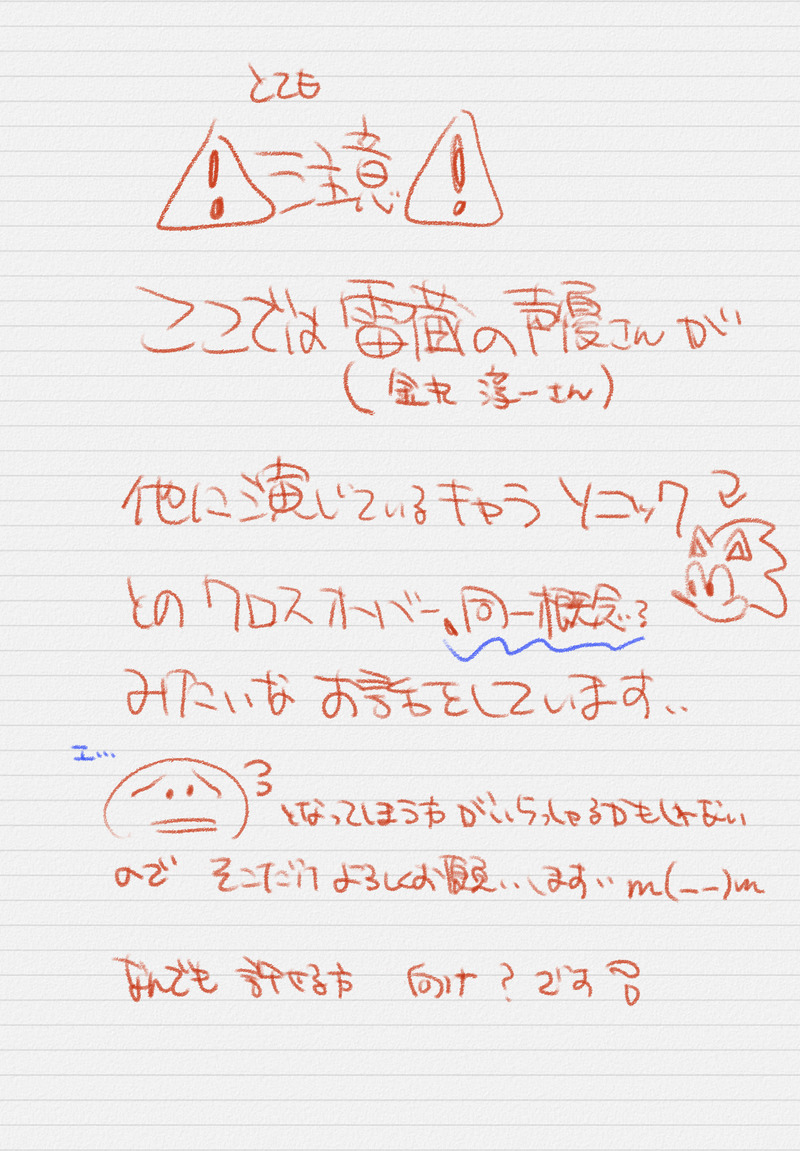 とても
注意
ここでは雷蔵の声優さんが
(金丸淳一さん)
他に演じているキャラ ソニック
とのクロスオーバー、同一概念…?
みたいな お話をしています..
エ…
となってしまう方がいらっしゃるかもしれない
ので そこだけ よろしくお願いします.. m(__)m
なんでも 許せる方 向け?です